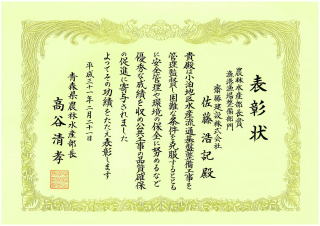 表彰状
農林水産部長賞
漁港漁場整備部門
齋勝建設株式会社
佐藤浩記殿
貴殿は小泊地区水産流通基盤整備工事を
管理監督し困難な条件を克服するとともに
安全管理や環境の保全に努めるなど
優秀な成績を収め公共工事の品質確保
の促進に寄与されました
よってその功績をたたえ表彰します
平成三十一年二月二十一日
青森県農林水産部長
高谷清孝